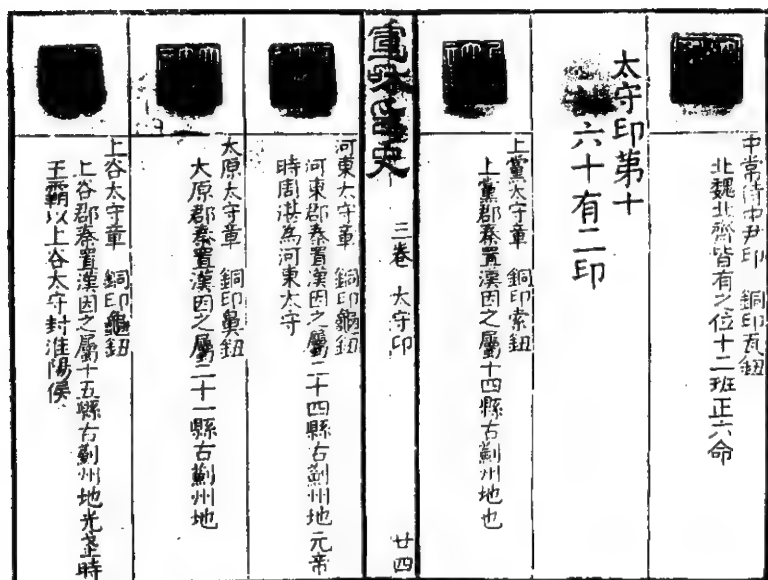 中常侍中尹印　銅印瓦鈕
北魏北齊皆有之位十二班正六命
太守印第十
六十有二印
上黨太守章　銅印索鈕
上黨郡秦置漢因之屬十四縣古薊州地也
宣和印史　三卷　太守印　廿四
河東太守章　銅印龜鈕
河東郡秦置漢因之屬二十四縣古薊州地元帝
時周湛為河東太守
太原太守章　銅印鼻鈕
大原郡秦置漢因之屬二十一縣古薊州地
上谷太守章　銅印龜鈕
上谷郡秦置漢因之屬十五縣古薊州地光武時
王霸以上谷太守封淮陽侯